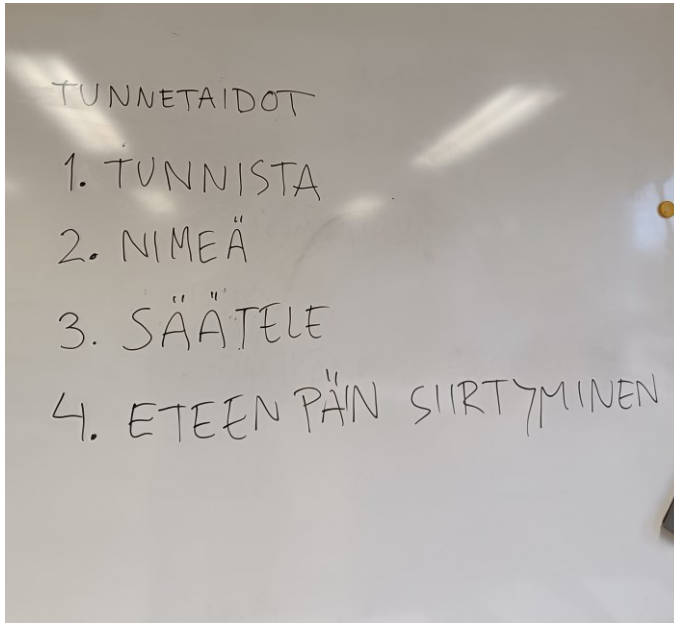 TUNNETAIDOT
1. TUNNISTA
2. NIMEÄ
3. SÄÄTELE
4. ETEENPÄIN SIIRTYMINEN